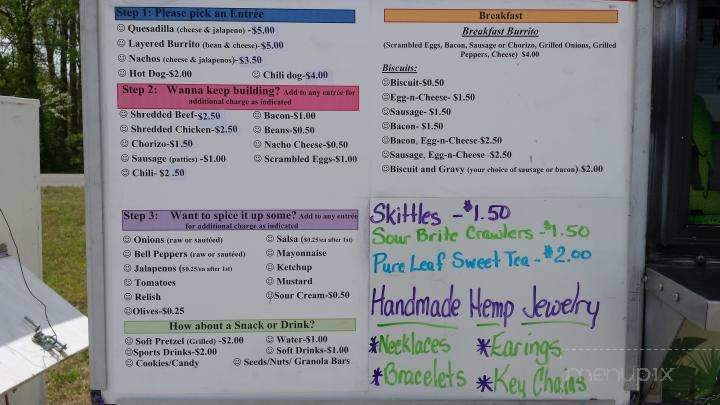 Step 1: Please pick an Entrée
☺ Quesadilla (cheese & jalapeno) -$5.00
☺ Layered Burrito (bean & cheese)-$5.00
☺ Nachos (cheese & jalapenos)-$3.50
☺ Hot Dog-$2.00 ☺ Chili dog-$4.00
Step 2: Wanna keep building? Add to any entrée for
additional charge as indicated
☺ Shredded Beef-$2.50 ☺ Bacon-$1.00
☺ Shredded Chicken-$2.50 ☺ Beans-$0.50
☺ Chorizo-$1.50 ☺ Nacho Cheese-$0.50
☺ Sausage (patties) -$1.00 ☺ Scrambled Eggs-$1.00
☺ Chili- $2.50
Step 3: Want to spice it up some? Add to any entrée
for additional charge as indicated
☺ Onions (raw or sautéed) ☺ Salsa ($0.25/ea after 1st)
☺ Bell Peppers (raw or sautéed) ☺ Mayonnaise
☺ Jalapenos ($0.25/ea after 1st) ☺ Ketchup
☺ Tomatoes ☺ Mustard
☺ Relish ☺Sour Cream-$0.50
☺Olives-$0.25
How about a Snack or Drink?
☺ Soft Pretzel (Grilled) -$2.00 ☺ Water-$1.00
☺Sports Drinks-$2.00 ☺ Soft Drinks-$1.00
☺ Cookies/Candy ☺ Seeds/Nuts/ Granola Bars
Breakfast
Breakfast Burrito
(Scrambled Eggs, Bacon, Sausage or Chorizo, Grilled Onions, Grilled
Peppers, Cheese) $4.00
Biscuits:
☺Biscuit-$0.50
☺Egg-n-Cheese- $1.50
☺Sausage- $1.50
☺Bacon- $1.50
☺Bacon, Egg-n-Cheese-$2.50
☺Sausage, Egg-n-Cheese -$2.50
☺Biscuit and Gravy (your choice of sausage or bacon)-$2.00
Skittles -$1.50
Sour Brite Crawlers -$1.50
Pure Leaf Sweet Tea - $2.00
Handmade Hemp Jewelry
*Necklaces *Earings
*Bracelets *Key Chains
menupix